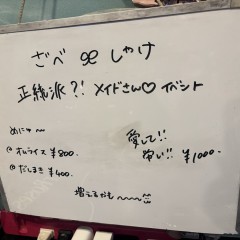 ざべ 𝓮 しゃけ
正統派?! メイドさん♡イベント
めにゅ〜
@ オムライス ¥800.
@ だしまき ¥400.
愛して!!
呪い!! ¥1000.
増えるかも〜〜〜